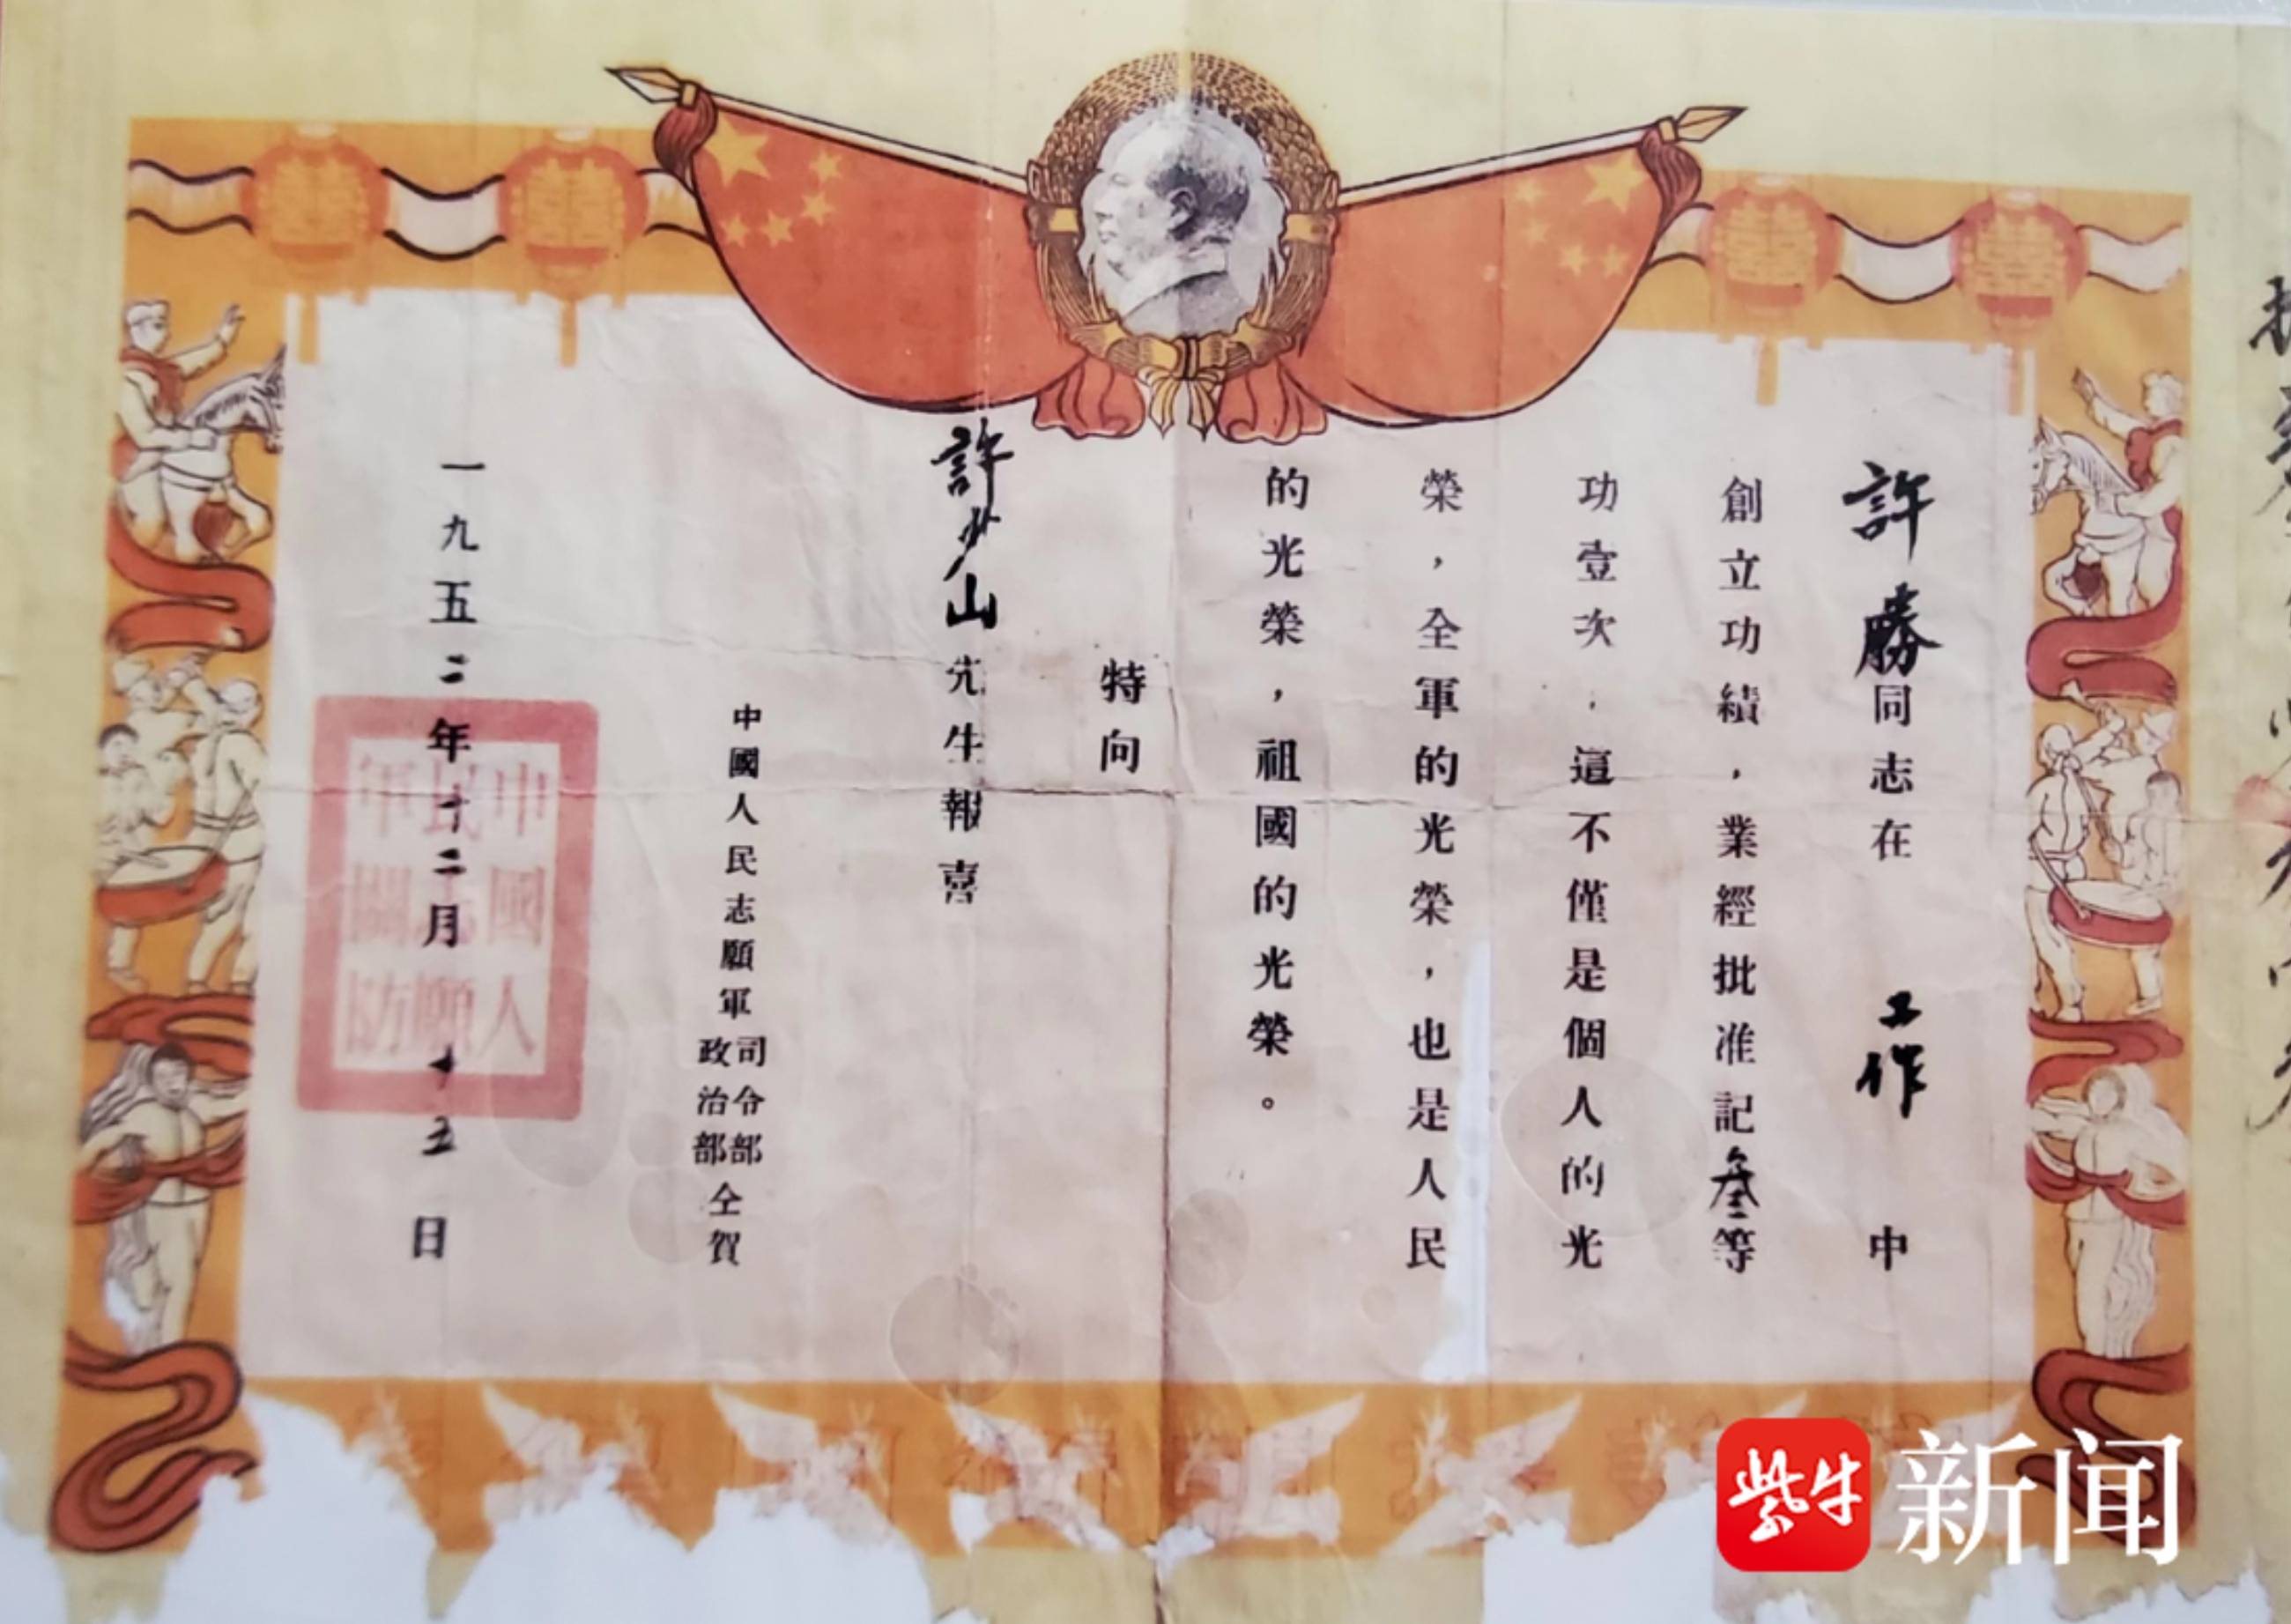 許勝同志在工作中
創立功績，業經批准記叁等
功壹次，這不僅是個人的光
榮，全軍的光榮，也是人民
的光榮，祖國的光榮。
特向
許少山先生報喜
中國人民志願軍司令部政治部仝賀
一九五二年十二月十五日
中國人民志願軍關防
紫牛新闻